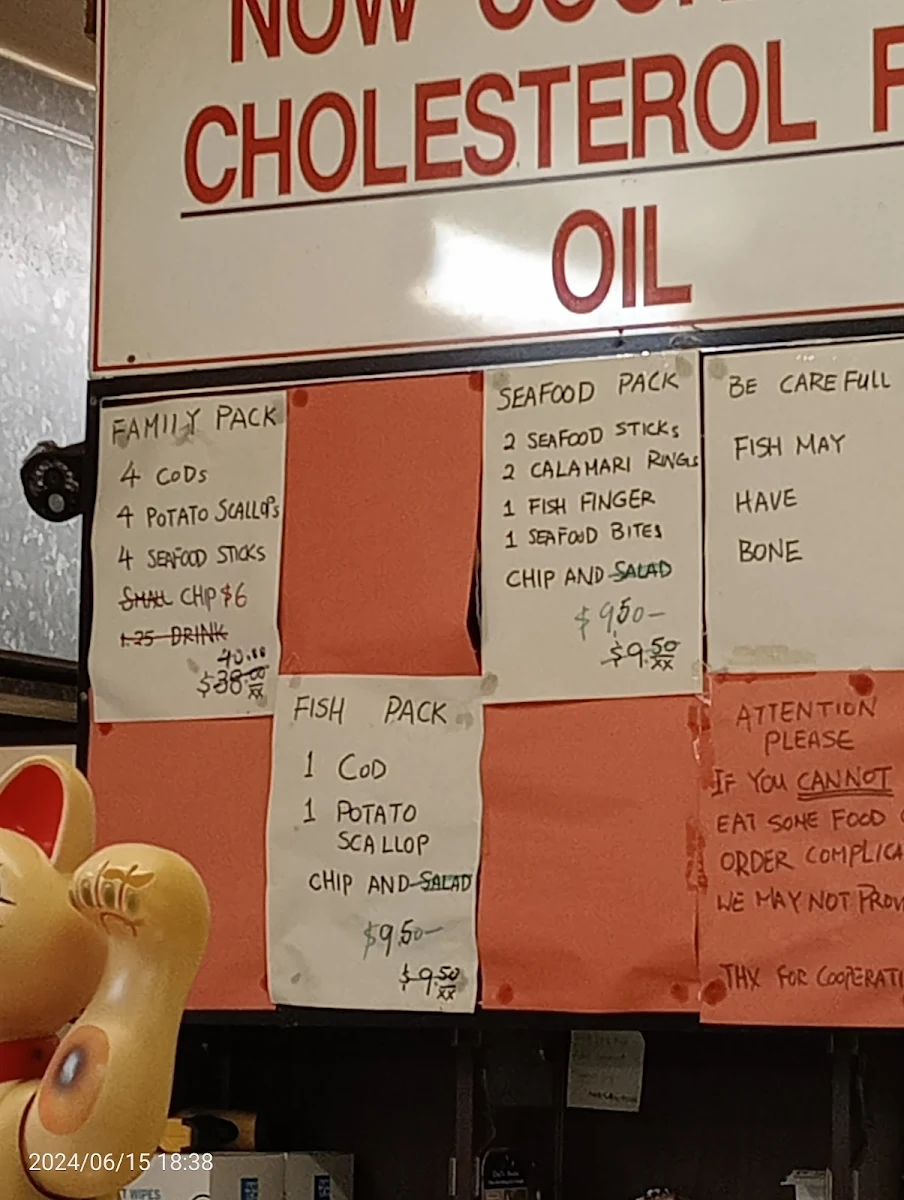 NOW
CHOLESTEROL F
OIL
FAMILY PACK
4 CODS
4 POTATO SCALLOPS
4 SEAFOOD STICKS
SMALL CHIP $6
1.25 DRINK
40.00
$38.00
XX
FISH PACK
1 COD
1 POTATO
SCALLOP
CHIP AND SALAD
$9.50-
$9.50
XX
SEAFOOD PACK
2 SEAFOOD STICKS
2 CALAMARI RINGS
1 FISH FINGER
1 SEAFOOD BITES
CHIP AND SALAD
$950-
$9.50
XX
BE CAREFULL
FISH MAY
HAVE
BONE
ATTENTION
PLEASE
IF YOU CANNOT
EAT SOME FOOD
ORDER COMPLICA
WE MAY NOT PROV
THX FOR COOPERATI
WIPES
2024/06/15 18:38